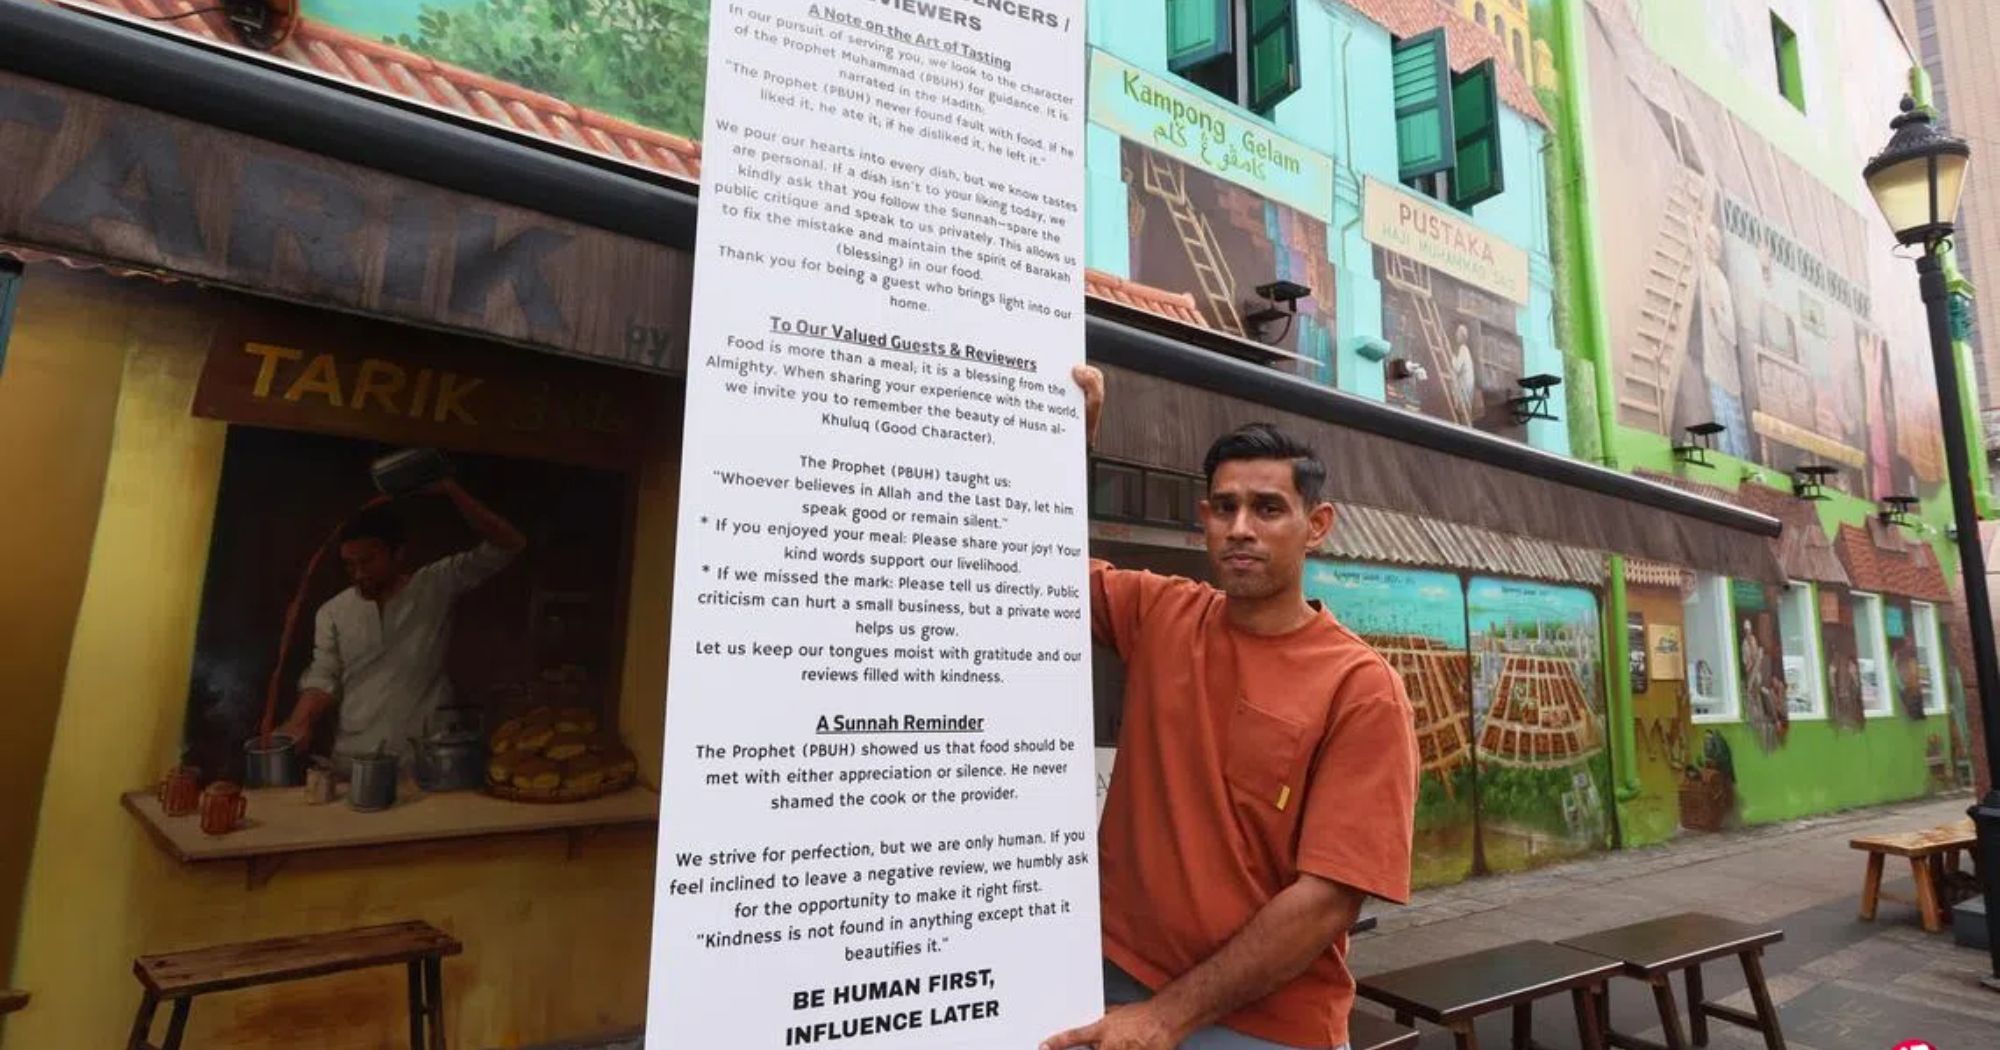 ENCERS /
VIEWERS
A Note on the Art of Tasting
In our pursuit of serving you, we look to the character
of the Prophet Muhammad (PBUH) for guidance. It is
narrated in the Hadith:
"The Prophet (PBUH) never found fault with food. If he
liked it, he ate it; if he disliked it, he left it."
We pour our hearts into every dish, but we know tastes
are personal. If a dish isn't to your liking today, we
kindly ask that you follow the Sunnah—spare the
public critique and speak to us privately. This allows us
to fix the mistake and maintain the spirit of Barakah
(blessing) in our food.
Thank you for being a guest who brings light into our
home.
To Our Valued Guests & Reviewers
Food is more than a meal; it is a blessing from the
Almighty. When sharing your experience with the world,
we invite you to remember the beauty of Husn al-
Khuluq (Good Character).
The Prophet (PBUH) taught us:
"Whoever believes in Allah and the Last Day, let him
speak good or remain silent."
* If you enjoyed your meal: Please share your joy! Your
kind words support our livelihood.
* If we missed the mark: Please tell us directly. Public
criticism can hurt a small business, but a private word
helps us grow.
Let us keep our tongues moist with gratitude and our
reviews filled with kindness.
A Sunnah Reminder
The Prophet (PBUH) showed us that food should be
met with either appreciation or silence. He never
shamed the cook or the provider.
We strive for perfection, but we are only human. If you
feel inclined to leave a negative review, we humbly ask
for the opportunity to make it right first.
"Kindness is not found in anything except that it
beautifies it."
BE HUMAN FIRST,
INFLUENCE LATER
TARIK
by
TARIK
Kampong Gelam
كامڤوڠ ݢلم
PUSTAKA
HAJI MUHAMMAD SAID